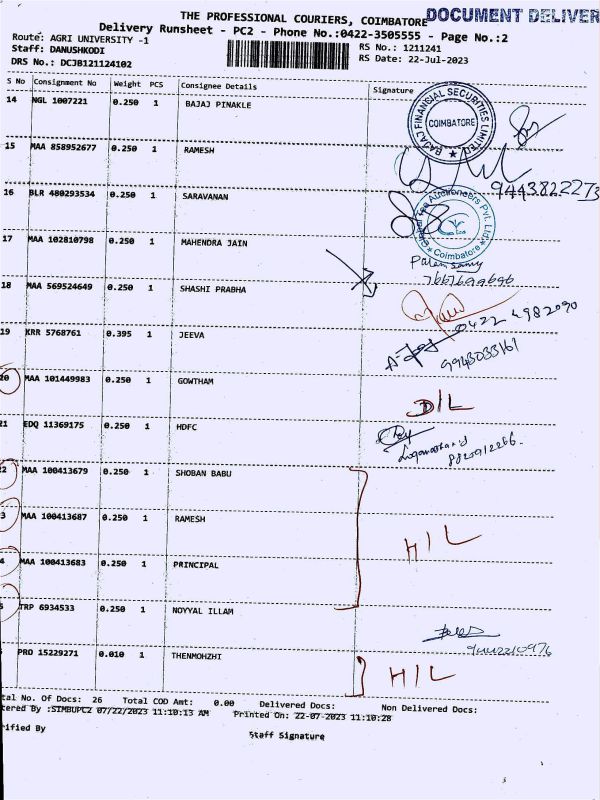 THE PROFESSIONAL COURIERS, COIMBATORE
DOCUMENT DELIVER
Delivery Runsheet - PC2 - Phone No.:0422-3505555 - Page No.:2
Route: AGRI UNIVERSITY -1
RS No.: 1211241
Staff: DANUSHKODI
RS Date: 22-Jul-2023
DRS No.: DCJB121124102
S No Consignment No Weight PCS Consignee Details Signature
14 NGL 1007221 0.250 1 BAJAJ PINAKLE
BAJAJ FINANCIAL SECURITIES LIMITED
COIMBATORE
15 MAA 858952677 0.250 1 RAMESH
9443822273
16 BLR 480293534 0.250 1 SARAVANAN
Auctioneers Pvt. Ltd.
Coimbatore
17 MAA 102810798 0.250 1 MAHENDRA JAIN
18 MAA 569524649 0.250 1 SHASHI PRABHA
19 KRR 5768761 0.395 1 JEEVA
9943033161
20 MAA 101449983 0.250 1 GOWTHAM
D/L
21 EDQ 11369175 0.250 1 HDFC
22 MAA 100413679 0.250 1 SHOBAN BABU
3 MAA 100413687 0.250 1 RAMESH
H/L
4 MAA 100413683 0.250 1 PRINCIPAL
5 TRP 6934533 0.250 1 NOYYAL ILLAM
PRO 15229271 0.010 1 THENMOHZHI
H/L
tal No. Of Docs: 26 Total COD Amt: 0.00 Delivered Docs: Non Delivered Docs:
tered By :SIMBUPC2 07/22/2023 11:10:13 AM Printed On: 22-07-2023 11:10:28
rified By
Staff Signature